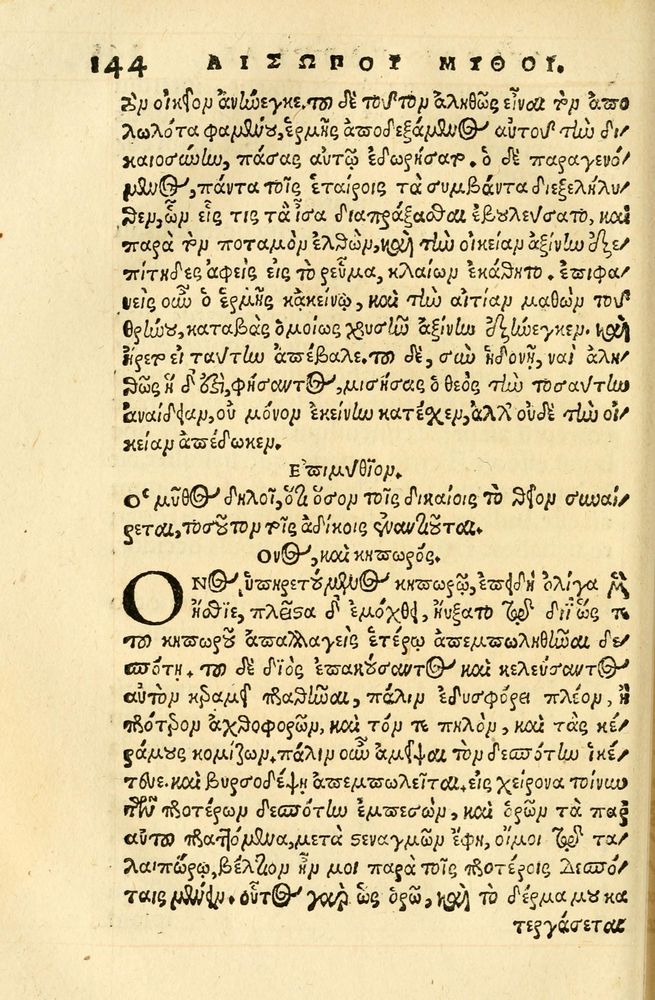 144 ΑΙΣΩΠΟΥ ΜΥΘΟΙ.
τὸν οἰκεῖον ἀνήνεγκε. τοῦ δὲ τοῦτον ἀληθῶς εἶναι τὸν ἀπο
λωλότα φαμένου, ἑρμῆς ἀποδεξάμενος αὐτοῦ τὴν δι
καιοσύνην, πάσας αὐτῷ ἐδωρήσατο. ὁ δὲ παραγενό
μενος, πάντα τοῖς ἑταίροις τὰ συμβάντα διεξελήλυ
θεν, ὧν εἷς τις τὰ ἶσα διαπράξασθαι ἐβουλεύσατο, καὶ
παρὰ τὸν ποταμὸν ἐλθὼν, καὶ τὴν οἰκείαν ἀξίνην ἐξε
πίτηδες ἀφεὶς εἰς τὸ ρεῦμα, κλαίων ἐκάθητο. ἐπιφα
νεὶς οὖν ὁ ἑρμῆς κἀκείνῳ, καὶ τὴν αἰτίαν μαθὼν τοῦ
θρήνου, καταβὰς ὁμοίως χρυσῆν ἀξίνην ἐξήνεγκεν. καὶ
ἤρετο εἰ ταύτην ἀπέβαλε. τοῦ δὲ, σὺν ἡδονῇ, ναὶ ἀλη
θῶς ἥδ᾽ ἐστὶ, φήσαντος, μισήσας ὁ θεὸς τὴν τοσαύτην
ἀναίδειαν, οὐ μόνον ἐκείνην κατέσχεν, ἀλλ᾽ οὐδὲ τὴν οἰ
κείαν ἀπέδωκεν.
Ἐπιμύθιον.
Ὁ μῦθος δηλοῖ, ὅτι ὅσον τοῖς δικαίοις τὸ θεῖον συναί
ρεται, τοσοῦτον τοῖς ἀδίκοις ἐναντιοῦται.
Ονος, καὶ κηπωρός.
ΟΝος, ὑπηρετούμενος κηπωρῷ, ἐπειδὴ ὀλίγα μὲν
ἤσθιε, πλεῖστα δ᾽ ἐμόχθει, ηὔξατο τῷ διῒ ὥς τε
τοῦ κηπωροῦ ἀπαλλαγεὶς ἑτέρῳ ἀπεμπωληθῆναι δε
σπότῃ. τοῦ δὲ διὸς ἐπακούσαντος καὶ κελεύσαντος
αὐτὸν κεραμεῖ πραθῆναι, πάλιν ἐδυσφόρει πλέον, ἢ
πρότερον ἀχθοφορῶν, καὶ τόν τε πηλὸν, καὶ τὰς κε
ράμους κομίζων. πάλιν οὖν ἀμεῖψαι τὸν δεσπότην ἱκέ
τευε. καὶ βυρσοδέψῃ ἀπεμπωλεῖται. εἰς χείρονα τοίνυν
τῶν προτέρων δεσπότην ἐμπεσὼν, καὶ ὁρῶν τὰ παρ᾽
αὐτοῦ πραττόμενα, μετὰ στεναγμῶν ἔφη, οἴμοι τῷ τα
λαιπώρῳ, βέλτιον ἦν μοι παρὰ τοῖς προτέροις δεσπό
ταις μένειν. οὗτος γὰρ ὡς ὁρῶ, καὶ τὸ δέρμα μου κα
τεργάσεται